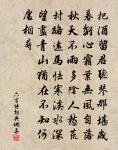 把酒留君聽琴那堪歲
暮離心霜葉無風自落
秋天不雨多陰人愁荒
村路遠馬怯寒溪水深
望盡青山獨在不知何
處相尋